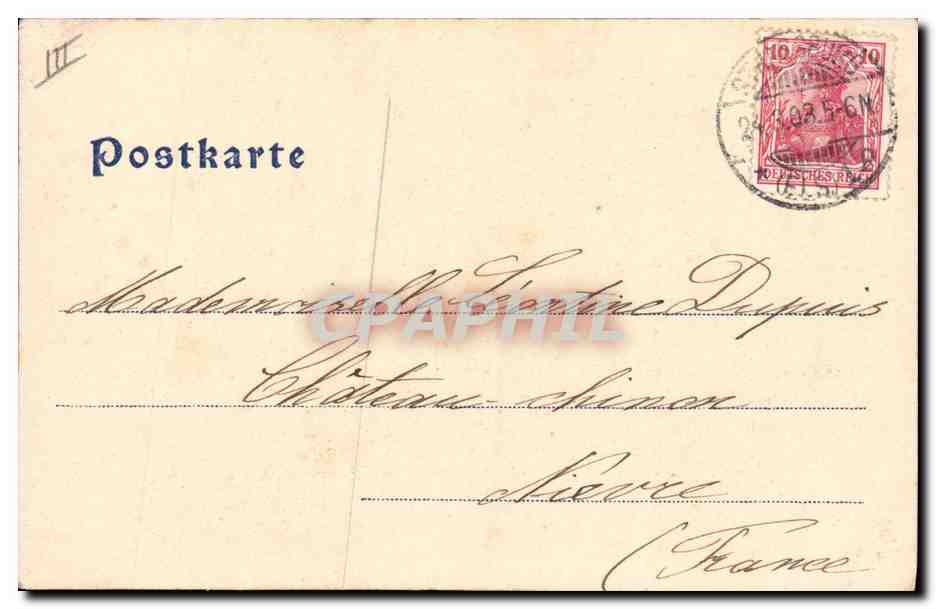 III
10 10
24.3.03.5-6N.
DEUTSCHES REICH
* (ELS.)
Postkarte
Mademoiselle Léontine Dupuis
CPAPHIL
Château-chinon
Nièvre
(France